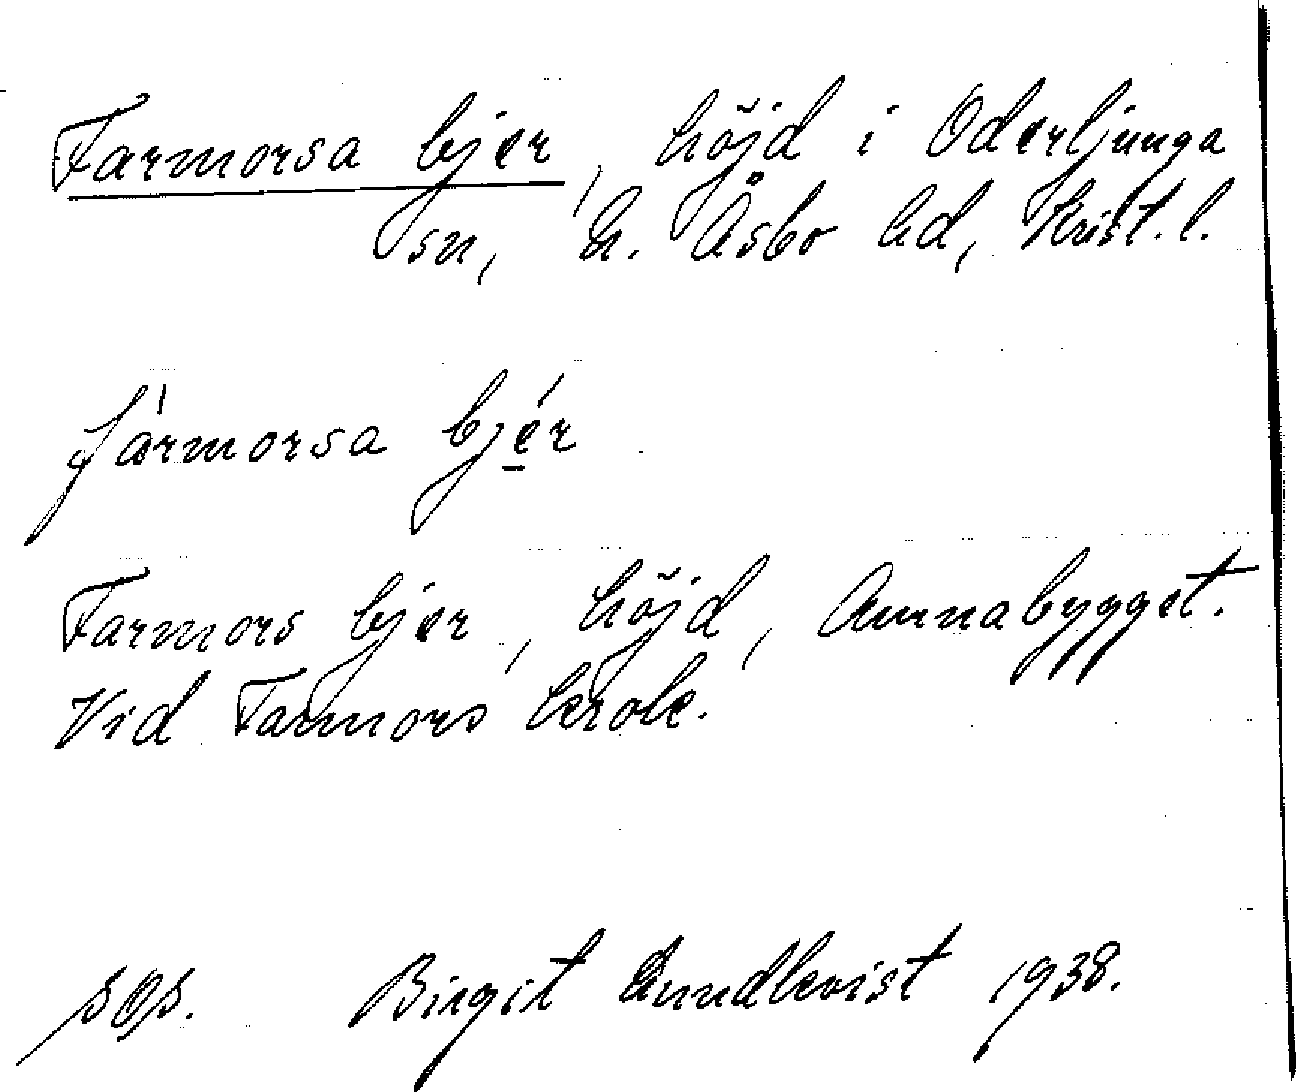 Farmorsa bjer, höjd i Oderljunga
sn, N. Åsbo hd, Krist. l.
fármorsa bjér
Farmors bjer, höjd, Annabygget.
Vid Farmors
Birgit 1938.